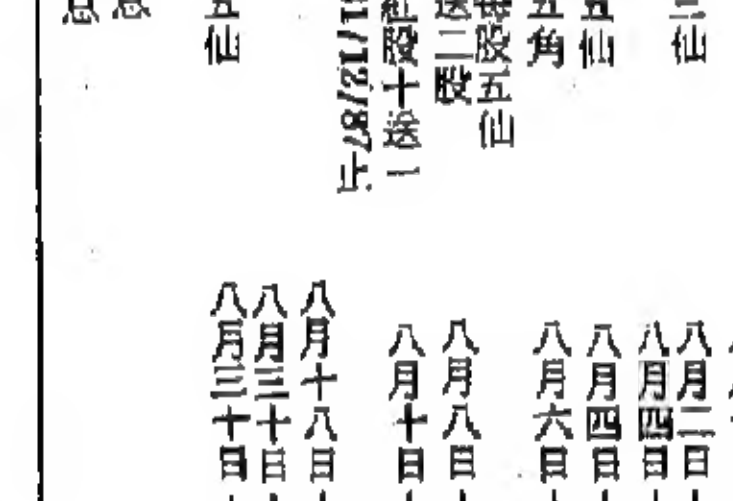 仙
五仙
五角
每股五仙
送二股
紅股十送一
1/12/87止
五仙
息
息
八月二日
八月四日
八月四日
八月六日
八月八日
八月十日
八月十八日
八月三十日
八月三十日